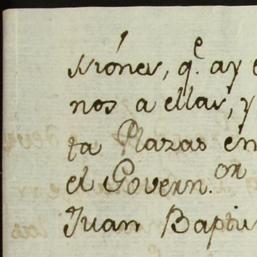 rrónes, q.e ay e
nos a ellas, y
ta Plazas en
el Govern.or
Juan Baptis